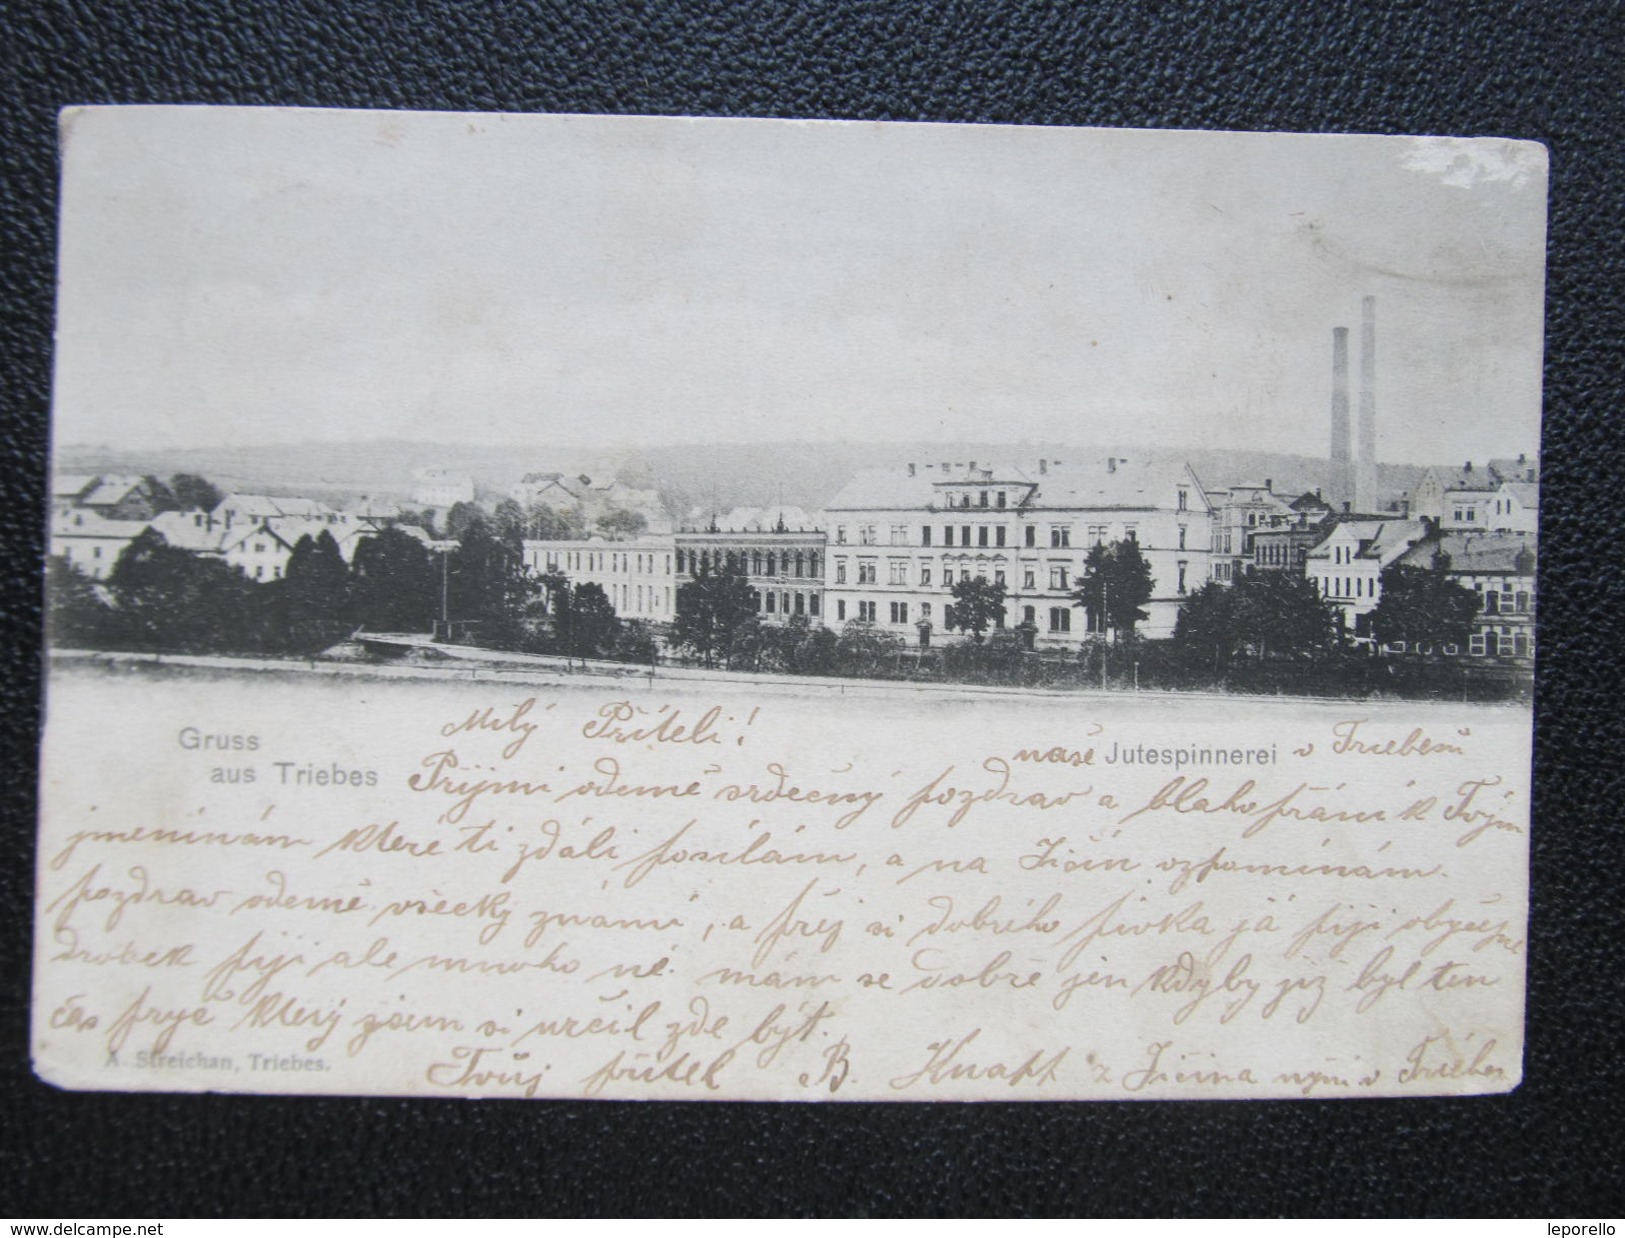 Milý Příteli!
Gruss
aus Triebes
naše Jutespinnerei v Triebesu
Přijmi odemě srdečný pozdrav a blahopřání k Tvým
jmeninám které ti zdáli posílám, a na Jičín vzpomínám.
pozdrav odemě všecky známí, a přej si dobrího pivka já piji obyčejně
drobek piji ale mnoho né. mám se dobře jen kdyby již byl ten
čas pryč který jsem si určil zde být.
A. Streichan, Triebes.
Tvůj přítel B. Knapp z Jičína nyní v Triebes
www.delcampe.net
leporello